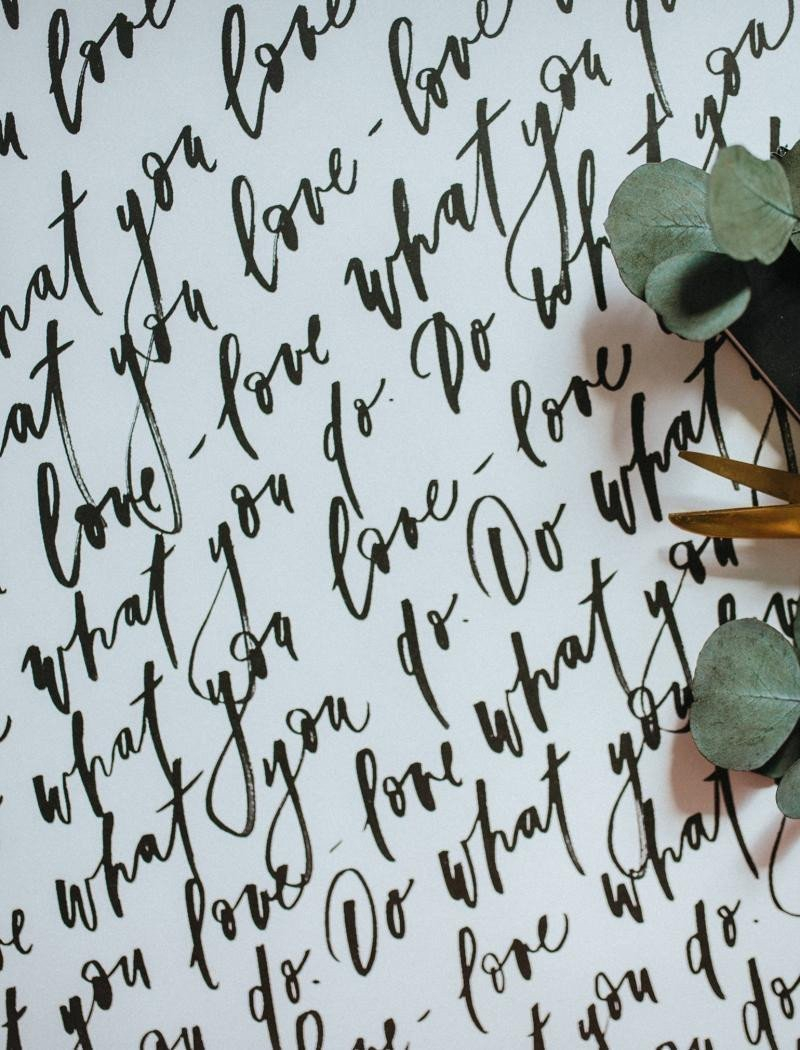 love
you love
you love - love
love - love what you do
what you do. Do what you
what you love - love
what you do. Do what
you love - love what you
you do. Do what you
love - love what
you do.
do